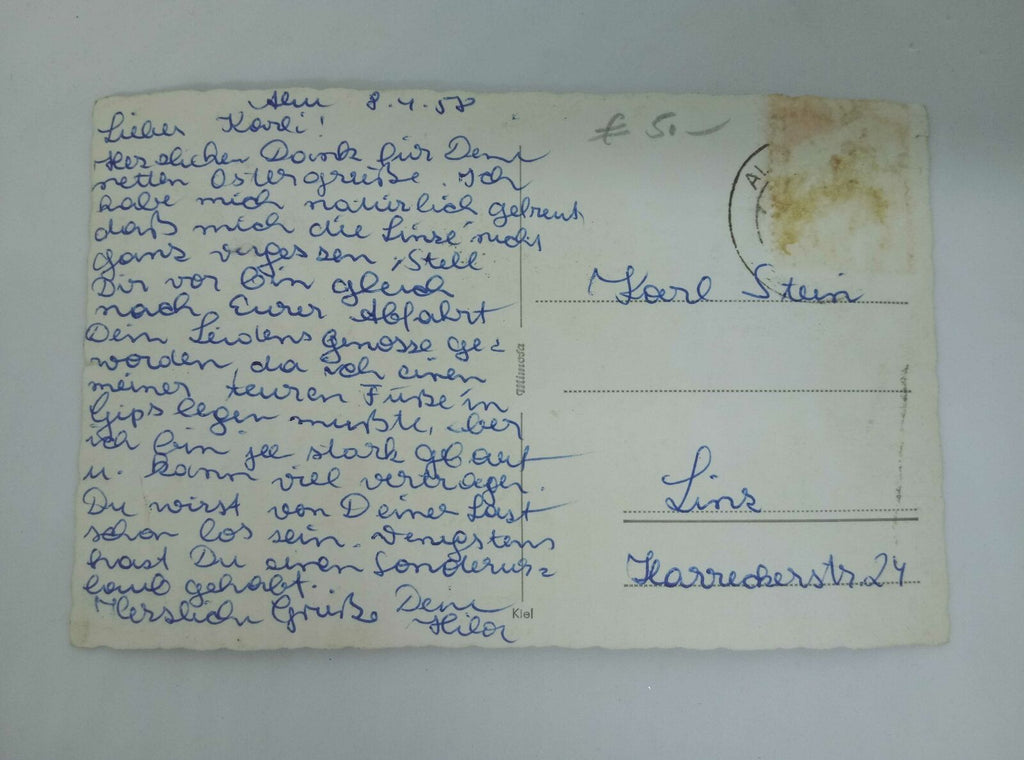 8.4.58
Lieber Karli!
Herzlichen Dank für Deine
netten Ostergrüße. Ich
habe mich natürlich gefreut
daß mich die Linze nicht
ganz vergessen, Stell
Dir vor bin gleich
nach Eurer Abfahrt
Dein Leidensgenosse ge=
worden, da ich einen
meiner teuren Füße in
Gips legen mußte, aber
ich bin ja stark gebaut
u. kann viel vertragen.
Du wirst von Deiner Last
schon los sein. Wenigstens
hast Du einen Sonderur=
laub gehabt.
Herzliche Grüße Deine
€ 50.-
AL
Karl Stein
Linz
Harreckerstr. 24
Mimosa
Kiel